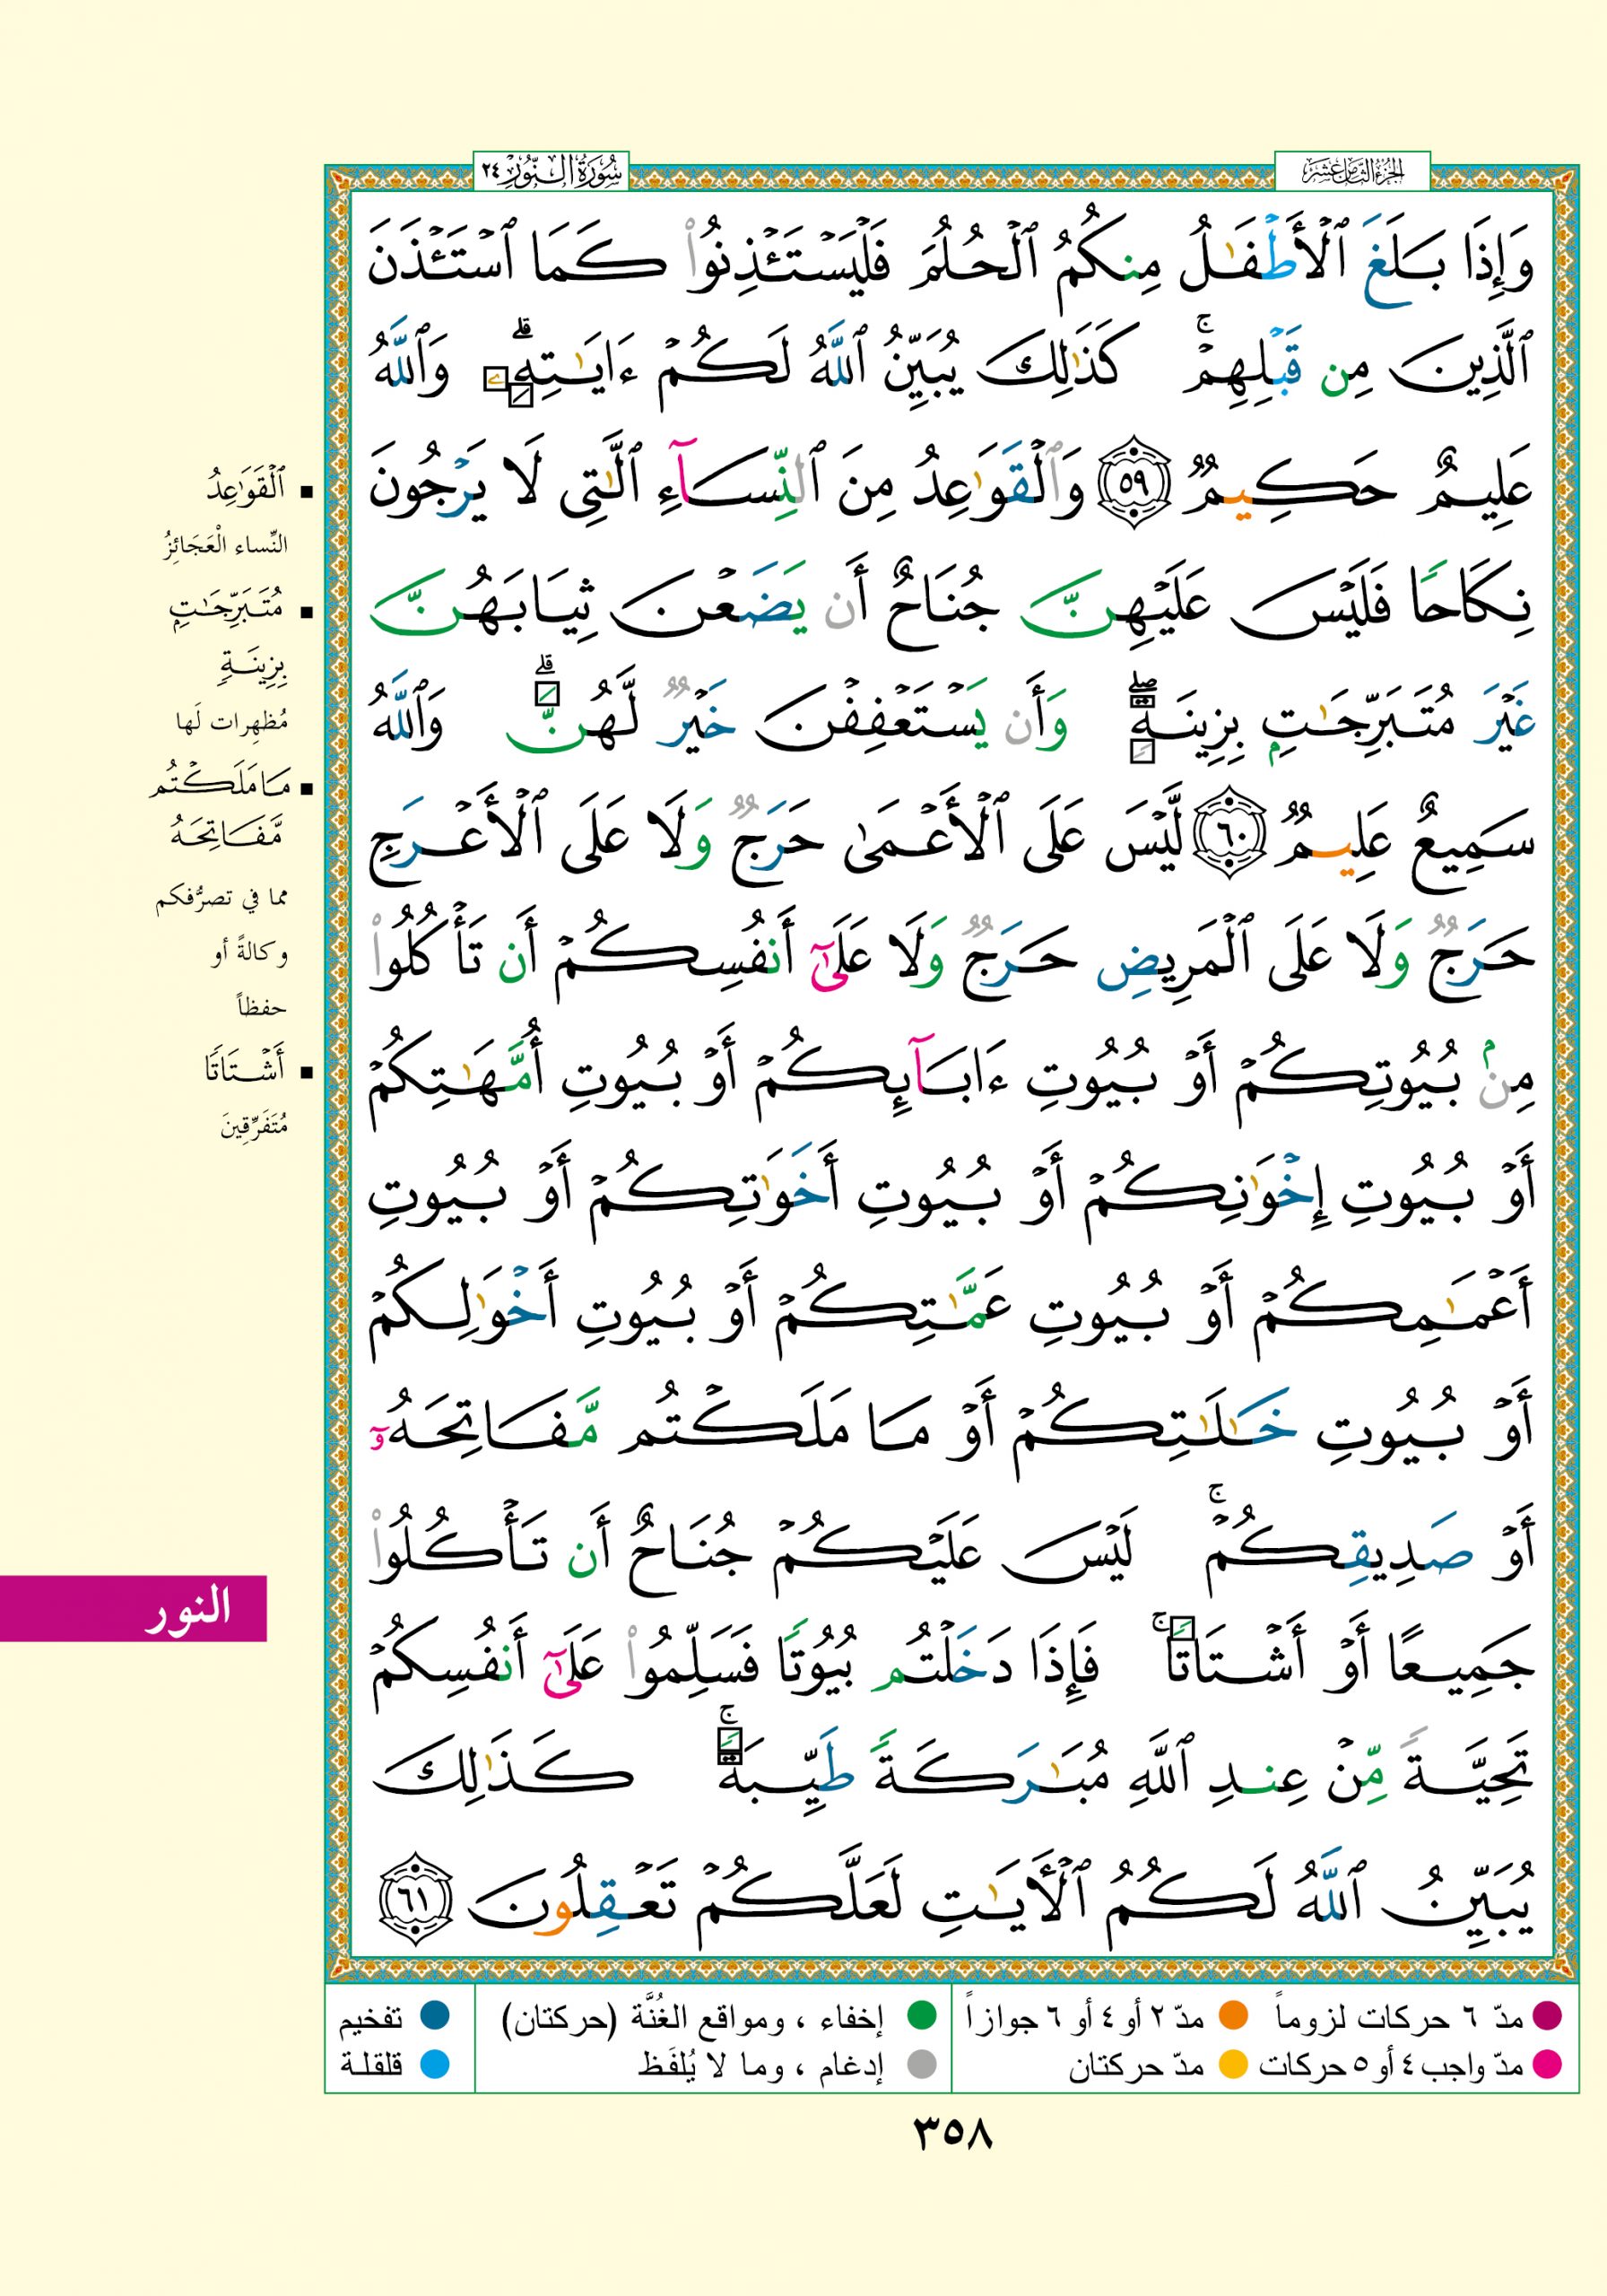 الجزء الثامن عشر
سُورَةُ النُّورِ ٢٤
وَإِذَا بَلَغَ ٱلْأَطْفَٰلُ مِنكُمُ ٱلْحُلُمَ فَلْيَسْتَـْٔذِنُوا۟ كَمَا ٱسْتَـْٔذَنَ
ٱلَّذِينَ مِن قَبْلِهِمْ ۚ كَذَٰلِكَ يُبَيِّنُ ٱللَّهُ لَكُمْ ءَايَٰتِهِۦ ۗ وَٱللَّهُ
عَلِيمٌ حَكِيمٌ ٥٩ وَٱلْقَوَٰعِدُ مِنَ ٱلنِّسَآءِ ٱلَّٰتِى لَا يَرْجُونَ
نِكَاحًا فَلَيْسَ عَلَيْهِنَّ جُنَاحٌ أَن يَضَعْنَ ثِيَابَهُنَّ
غَيْرَ مُتَبَرِّجَٰتٍۭ بِزِينَةٍ ۖ وَأَن يَسْتَعْفِفْنَ خَيْرٌ لَّهُنَّ ۗ وَٱللَّهُ
سَمِيعٌ عَلِيمٌ ٦٠ لَّيْسَ عَلَى ٱلْأَعْمَىٰ حَرَجٌ وَلَا عَلَى ٱلْأَعْرَجِ
حَرَجٌ وَلَا عَلَى ٱلْمَرِيضِ حَرَجٌ وَلَا عَلَىٰٓ أَنفُسِكُمْ أَن تَأْكُلُوا۟
مِنۢ بُيُوتِكُمْ أَوْ بُيُوتِ ءَابَآئِكُمْ أَوْ بُيُوتِ أُمَّهَٰتِكُمْ
أَوْ بُيُوتِ إِخْوَٰنِكُمْ أَوْ بُيُوتِ أَخَوَٰتِكُمْ أَوْ بُيُوتِ
أَعْمَٰمِكُمْ أَوْ بُيُوتِ عَمَّٰتِكُمْ أَوْ بُيُوتِ أَخْوَٰلِكُمْ
أَوْ بُيُوتِ خَٰلَٰتِكُمْ أَوْ مَا مَلَكْتُم مَّفَاتِحَهُۥٓ
أَوْ صَدِيقِكُمْ ۚ لَيْسَ عَلَيْكُمْ جُنَاحٌ أَن تَأْكُلُوا۟
جَمِيعًا أَوْ أَشْتَاتًا ۚ فَإِذَا دَخَلْتُم بُيُوتًا فَسَلِّمُوا۟ عَلَىٰٓ أَنفُسِكُمْ
تَحِيَّةً مِّنْ عِندِ ٱللَّهِ مُبَٰرَكَةً طَيِّبَةً ۚ كَذَٰلِكَ
يُبَيِّنُ ٱللَّهُ لَكُمُ ٱلْأَيَٰتِ لَعَلَّكُمْ تَعْقِلُونَ ٦١
▪ ٱلْقَوَٰعِدُ
النِّساء الْعَجَائِزُ
▪ مُتَبَرِّجَٰتٍۭ
بِزِينَةٍ
مُظهِرات لَها
▪ مَا مَلَكْتُم
مَّفَاتِحَهُ
مما في تصرُّفكم
وكالةً أو
حفظاً
▪ أَشْتَاتًا
مُتَفَرِّقِينَ
النور
مدّ ٦ حركات لزوماً ● مدّ ٢ أو ٤ أو ٦ جوازاً ● إخفاء ، ومواقع الغُنَّة (حركتان) ● تفخيم
مدّ واجب ٤ أو ٥ حركات ● مدّ حركتان ● إدغام ، وما لا يُلفَظ ● قلقلة
٣٥٨